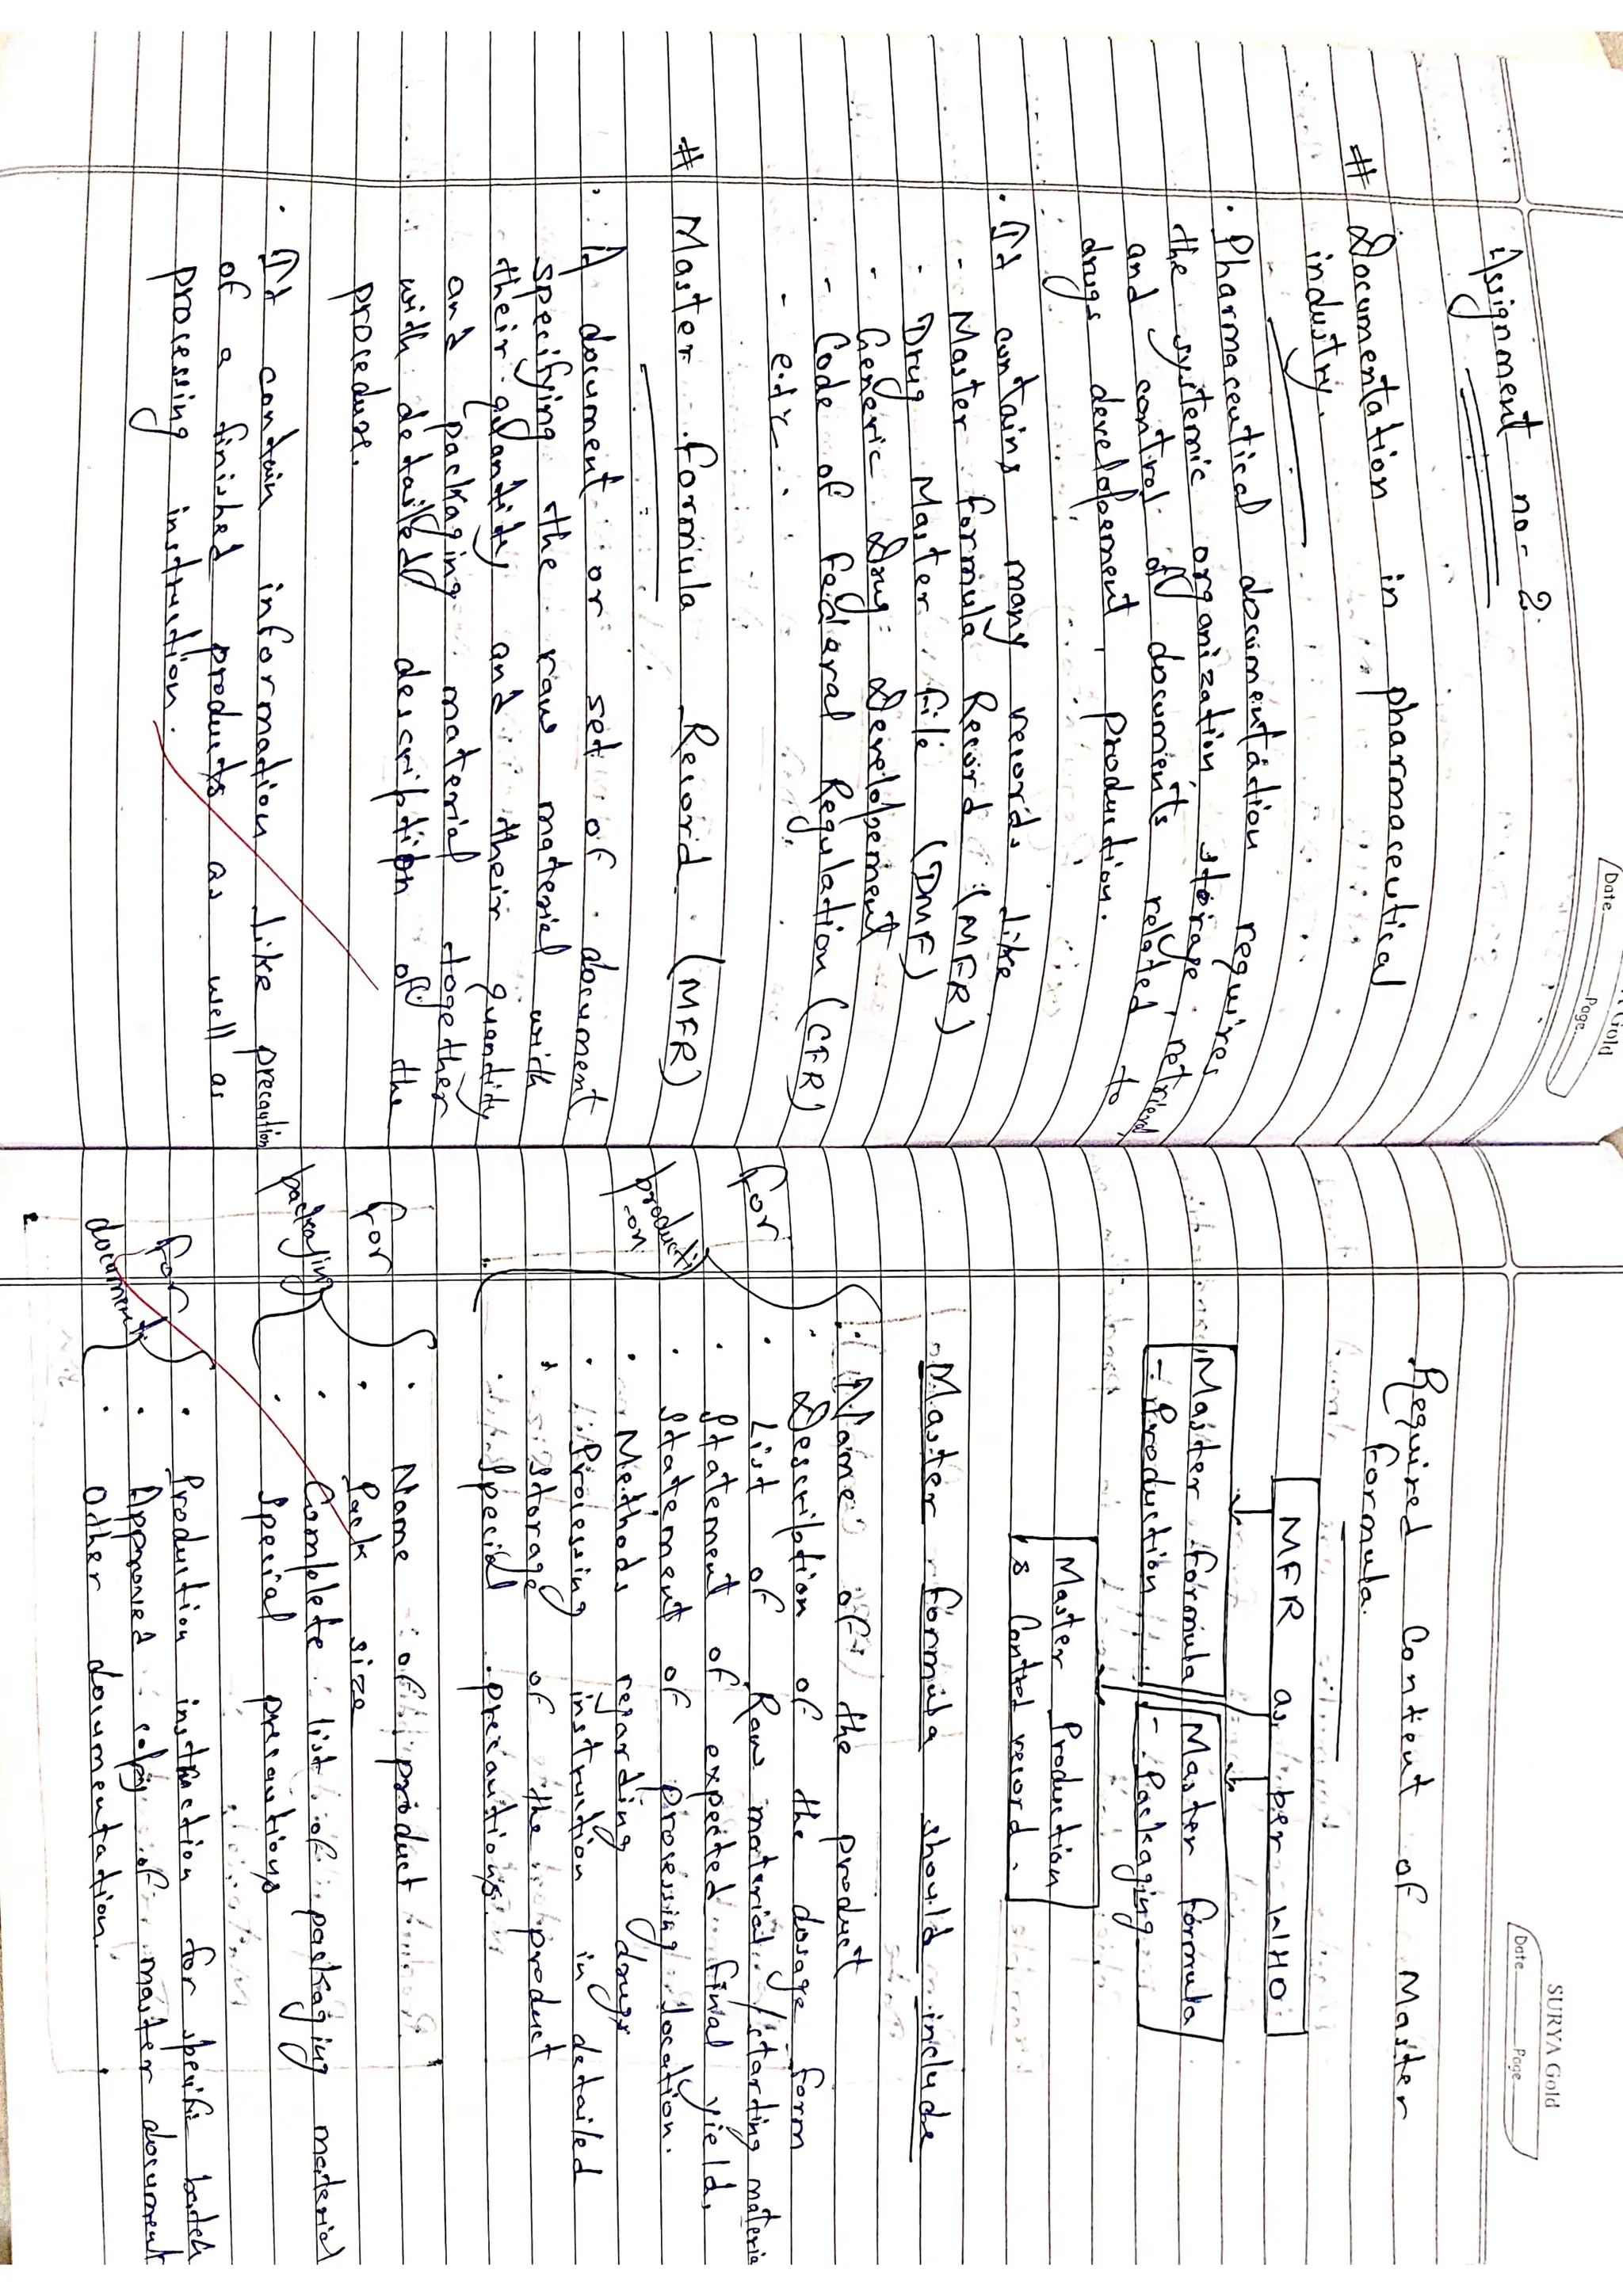 Gold
Date
Page
Assignment no- 2.
# Documentation in pharmaceutical
industry.
· Pharmaceutical documentation requires
the systemic organization, storage, retrieval
and control of documents related to
drugs developement, production.
· It contains many records like
- Master formula Record (MFR)
- Drug Master file (DMF)
- Generic Drug Developement
- Code of fedaral Regulation (CFR)
- etc.
# Master formula Record. (MFR)
· A document or set of document
specifying the raw material with
their quantity and their quantity
and packaging material together
with detailed description of the
procedure.
· It contain information like precaution
of a finished products as well as
processing instruction.
SURYA Gold
Date
Page
Required Content of Master
formula.
MFR as per WHO.
Master formula
- Production
Master formula
- Packaging
Master Production
& Control record.
Master formula should include
for producti-on
· Name of the product
· Description of the dosage form
· List of Raw material / starting materia
· Statement of expected final yield,
· Statement of processing location.
· Methods regarding drugs
· Processing instruction in detailed
· Storage of the product
· Special precautions.
for packaging
· Name of product
· Pack size
· Complete list of packaging material
· Special precautions
for document
· Production instruction for specific batch
· Approved copy of master document
· Other documentation.